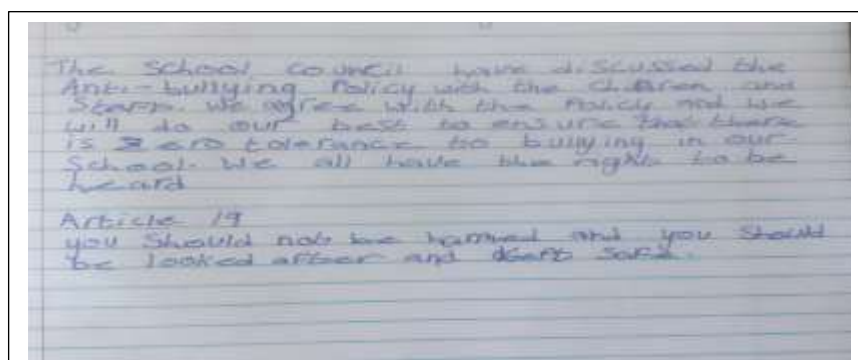 The School council have discussed the
Anti-bullying Policy with the children and
Staff. We agree with the Policy and we
will do our best to ensure that there
is zero tolerance to bullying in our
School. We all have the right to be
heard
Article 19
you Should not be harmed and you should
be looked after and kept safe.